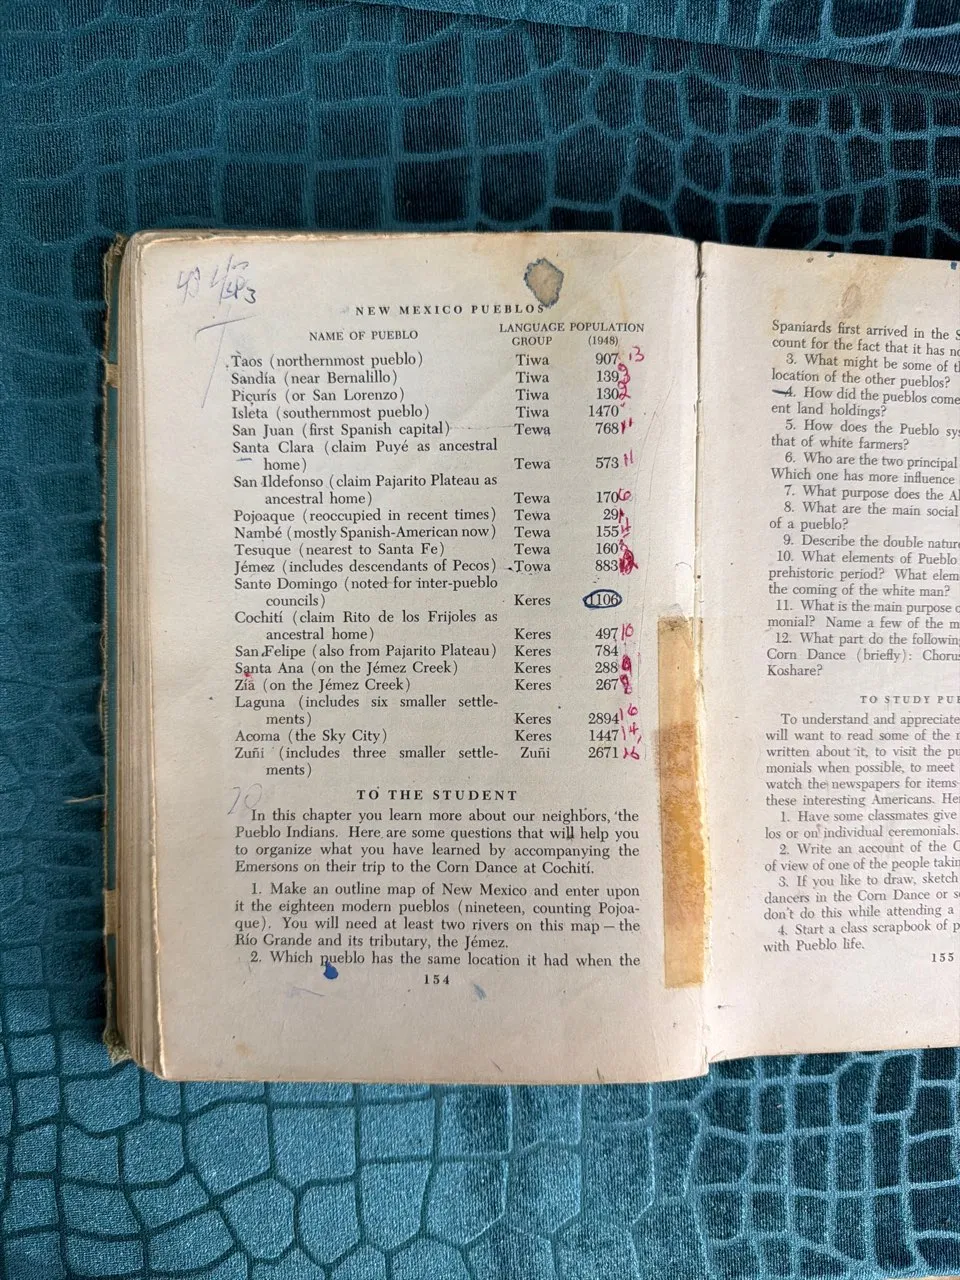 NEW MEXICO PUEBLOS
NAME OF PUEBLO LANGUAGE GROUP POPULATION (1948)
Taos (northernmost pueblo) Tiwa 907 13
Sandía (near Bernalillo) Tiwa 139
Picurís (or San Lorenzo) Tiwa 130
Isleta (southernmost pueblo) Tiwa 1470
San Juan (first Spanish capital) Tewa 768 11
Santa Clara (claim Puyé as ancestral
home) Tewa 573 11
San Ildefonso (claim Pajarito Plateau as
ancestral home) Tewa 170 6
Pojoaque (reoccupied in recent times) Tewa 29
Nambé (mostly Spanish-American now) Tewa 155
Tesuque (nearest to Santa Fe) Tewa 160
Jémez (includes descendants of Pecos) Towa 883
Santo Domingo (noted for inter-pueblo
councils) Keres 1106
Cochití (claim Rito de los Frijoles as
ancestral home) Keres 497 10
San Felipe (also from Pajarito Plateau) Keres 784
Santa Ana (on the Jémez Creek) Keres 288 9
Zía (on the Jémez Creek) Keres 267 8
Laguna (includes six smaller settle-
ments) Keres 2894 16
Acoma (the Sky City) Keres 1447 14
Zuñi (includes three smaller settle- Zuñi 2671 16
ments)
TO THE STUDENT
In this chapter you learn more about our neighbors, the
Pueblo Indians. Here are some questions that will help you
to organize what you have learned by accompanying the
Emersons on their trip to the Corn Dance at Cochití.
1. Make an outline map of New Mexico and enter upon
it the eighteen modern pueblos (nineteen, counting Pojoa-
que). You will need at least two rivers on this map — the
Río Grande and its tributary, the Jémez.
2. Which pueblo has the same location it had when the
154
Spaniards first arrived in the
count for the fact that it has
3. What might be some of
location of the other pueblos?
4. How did the pueblos come
ent land holdings?
5. How does the Pueblo
that of white farmers?
6. Who are the two principal
Which one has more influence
7. What purpose does the
8. What are the main social
of a pueblo?
9. Describe the double
10. What elements of Pueblo
prehistoric period? What
the coming of the white man?
11. What is the main purpose
monial? Name a few of the
12. What part do the following
Corn Dance (briefly):
Koshare?
TO STUDY
To understand and appreciate
will want to read some of the
written about it, to visit the
monials when possible, to meet
watch the newspapers for items
these interesting Americans.
1. Have some classmates give
los or on individual ceremonials.
2. Write an account of the
of view of one of the people
3. If you like to draw, sketch
dancers in the Corn Dance or
don't do this while attending a
4. Start a class scrapbook of
with Pueblo life.
155